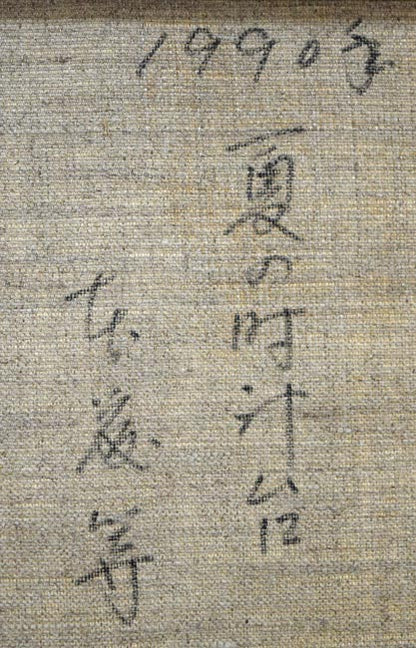 1990年
夏の時計台
等